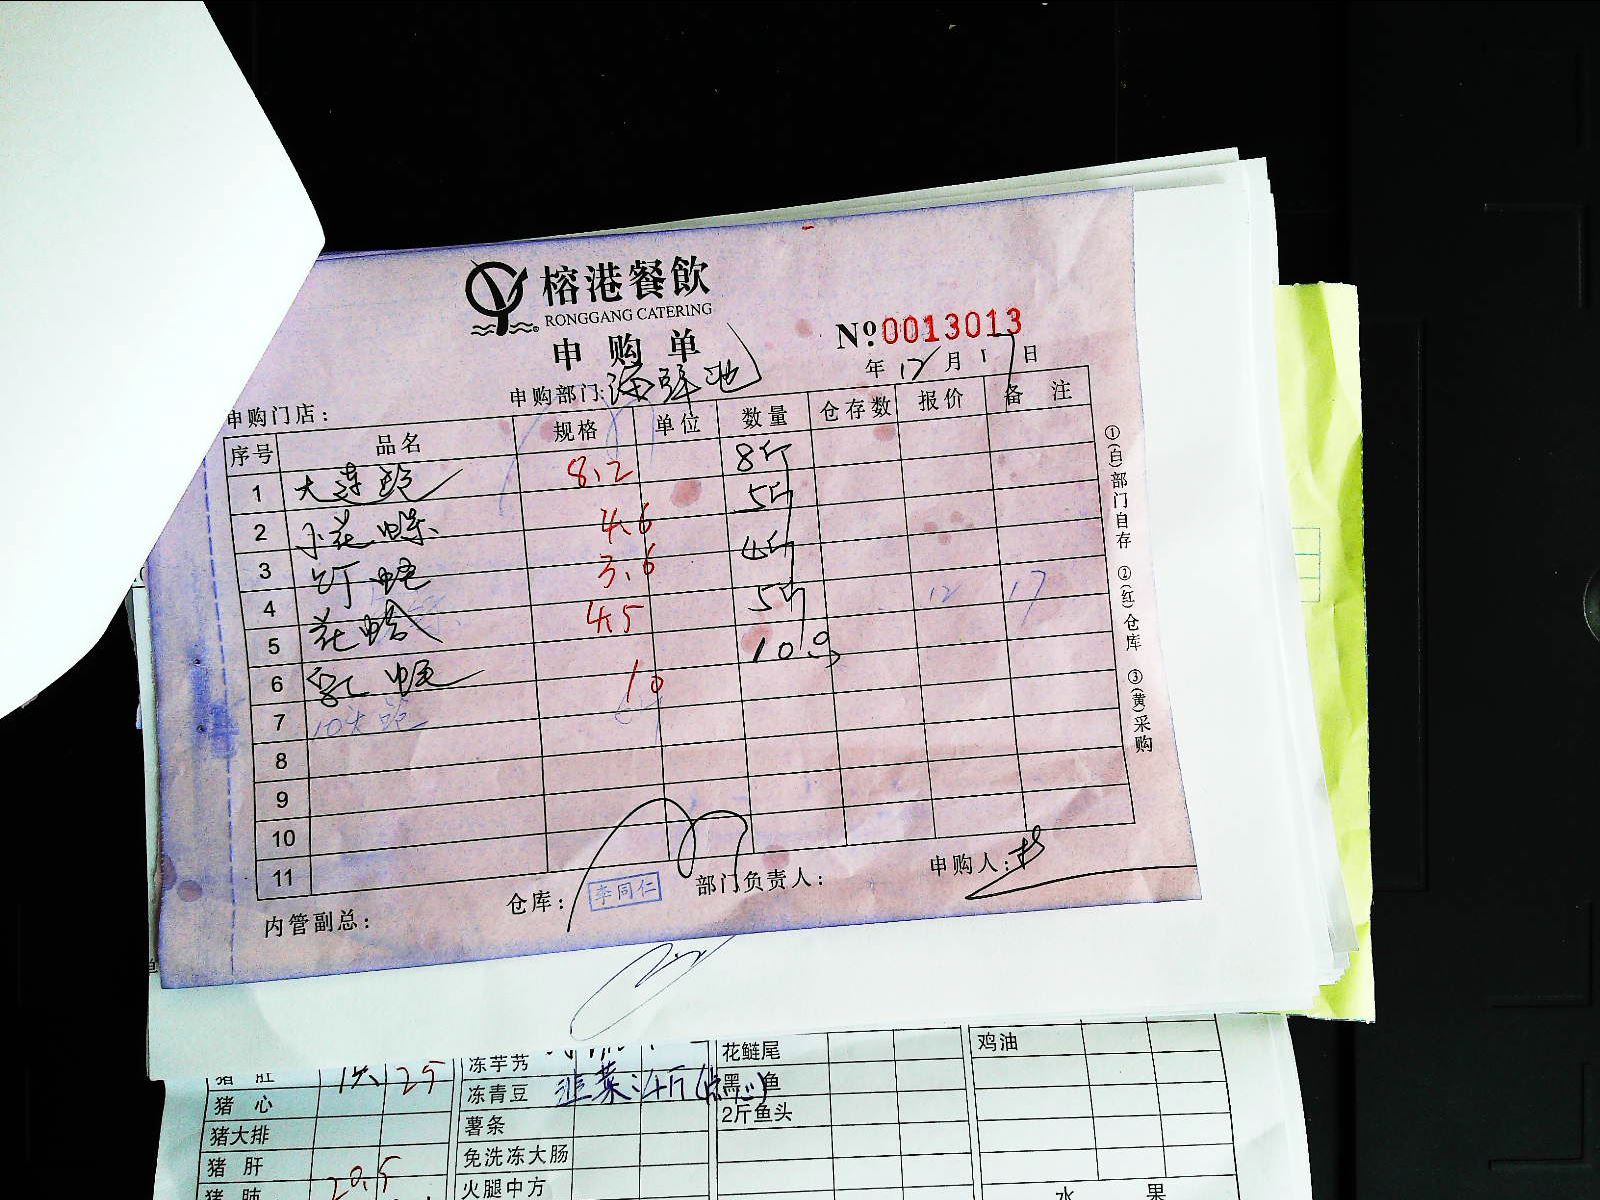 榕港餐飲
RONGGANG CATERING
申购单
№:0013013
申购部门:海鲜池
年 12 月 17 日
申购门店:
序号 品名 规格 单位 数量 仓存数 报价 备注
1 大连鲍 8.2 8斤
2 小花螺 4.6 5斤
3 3.6 4斤
4 花蛤 4.5 5斤
5 10
6
7 10头鲍
8
9
10
11
12 17
①(白)部门自存 ②(红)仓库 ③(黄)采购
内管副总: 仓库: 李同仁 部门负责人: 申购人:
猪肚 25 冻芋艿 花鲢尾 鸡油
猪心 冻青豆 韭菜 (点心) 黑鱼
猪大排 薯条 2斤鱼头
猪肝 免洗冻大肠
猪肺 20.5 火腿中方 水果